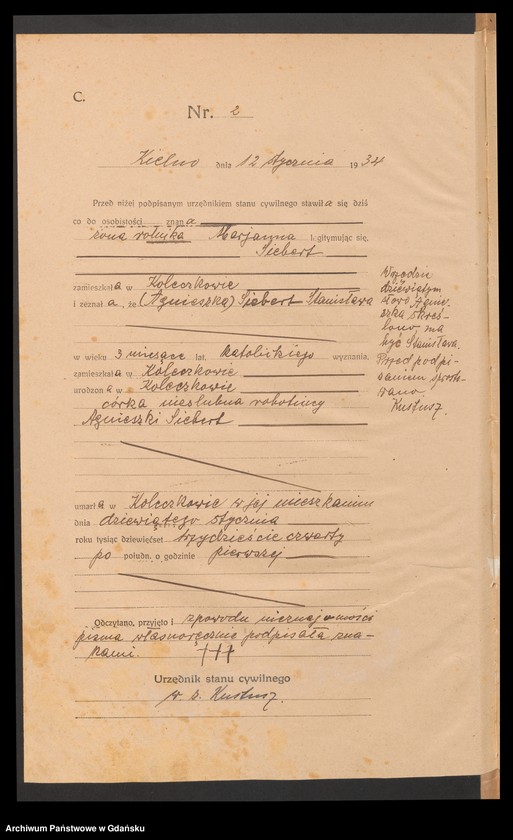 C.
Nr. 2
Kielno dnia 12 stycznia 1934
Przed niżej podpisanym urzędnikiem stanu cywilnego stawiła się dziś
co do osobistości znana
żona rolnika Marjanna legitymując się,
Siebert
zamieszkała w Koleczkowie
i zeznała, że (Agnieszka) Siebert Stanisława
w wieku 3 miesiące lat, katolickiego wyznania,
zamieszkała w Koleczkowie
urodzona w Koleczkowie
córka nieślubna robotnicy
Agnieszki Siebert
umarła w Koleczkowie w jej mieszkaniu
dnia dziewiątego stycznia
roku tysiąc dziewięćset trzydzieście czwarty
po połudn. o godzinie pierwszej
Odczytano, przyjęto i z powodu nieznajomości
pisma własnoręcznie podpisała zna-
kami. +++
Urzędnik stanu cywilnego
w z. Kustusz.
W rzędzie
dziewiątym
słowo Agnie-
szka skreś-
lono, ma
być Stanisława.
Przed podpi-
saniem sprosto-
wano.
Kustusz.
Archiwum Państwowe w Gdańsku